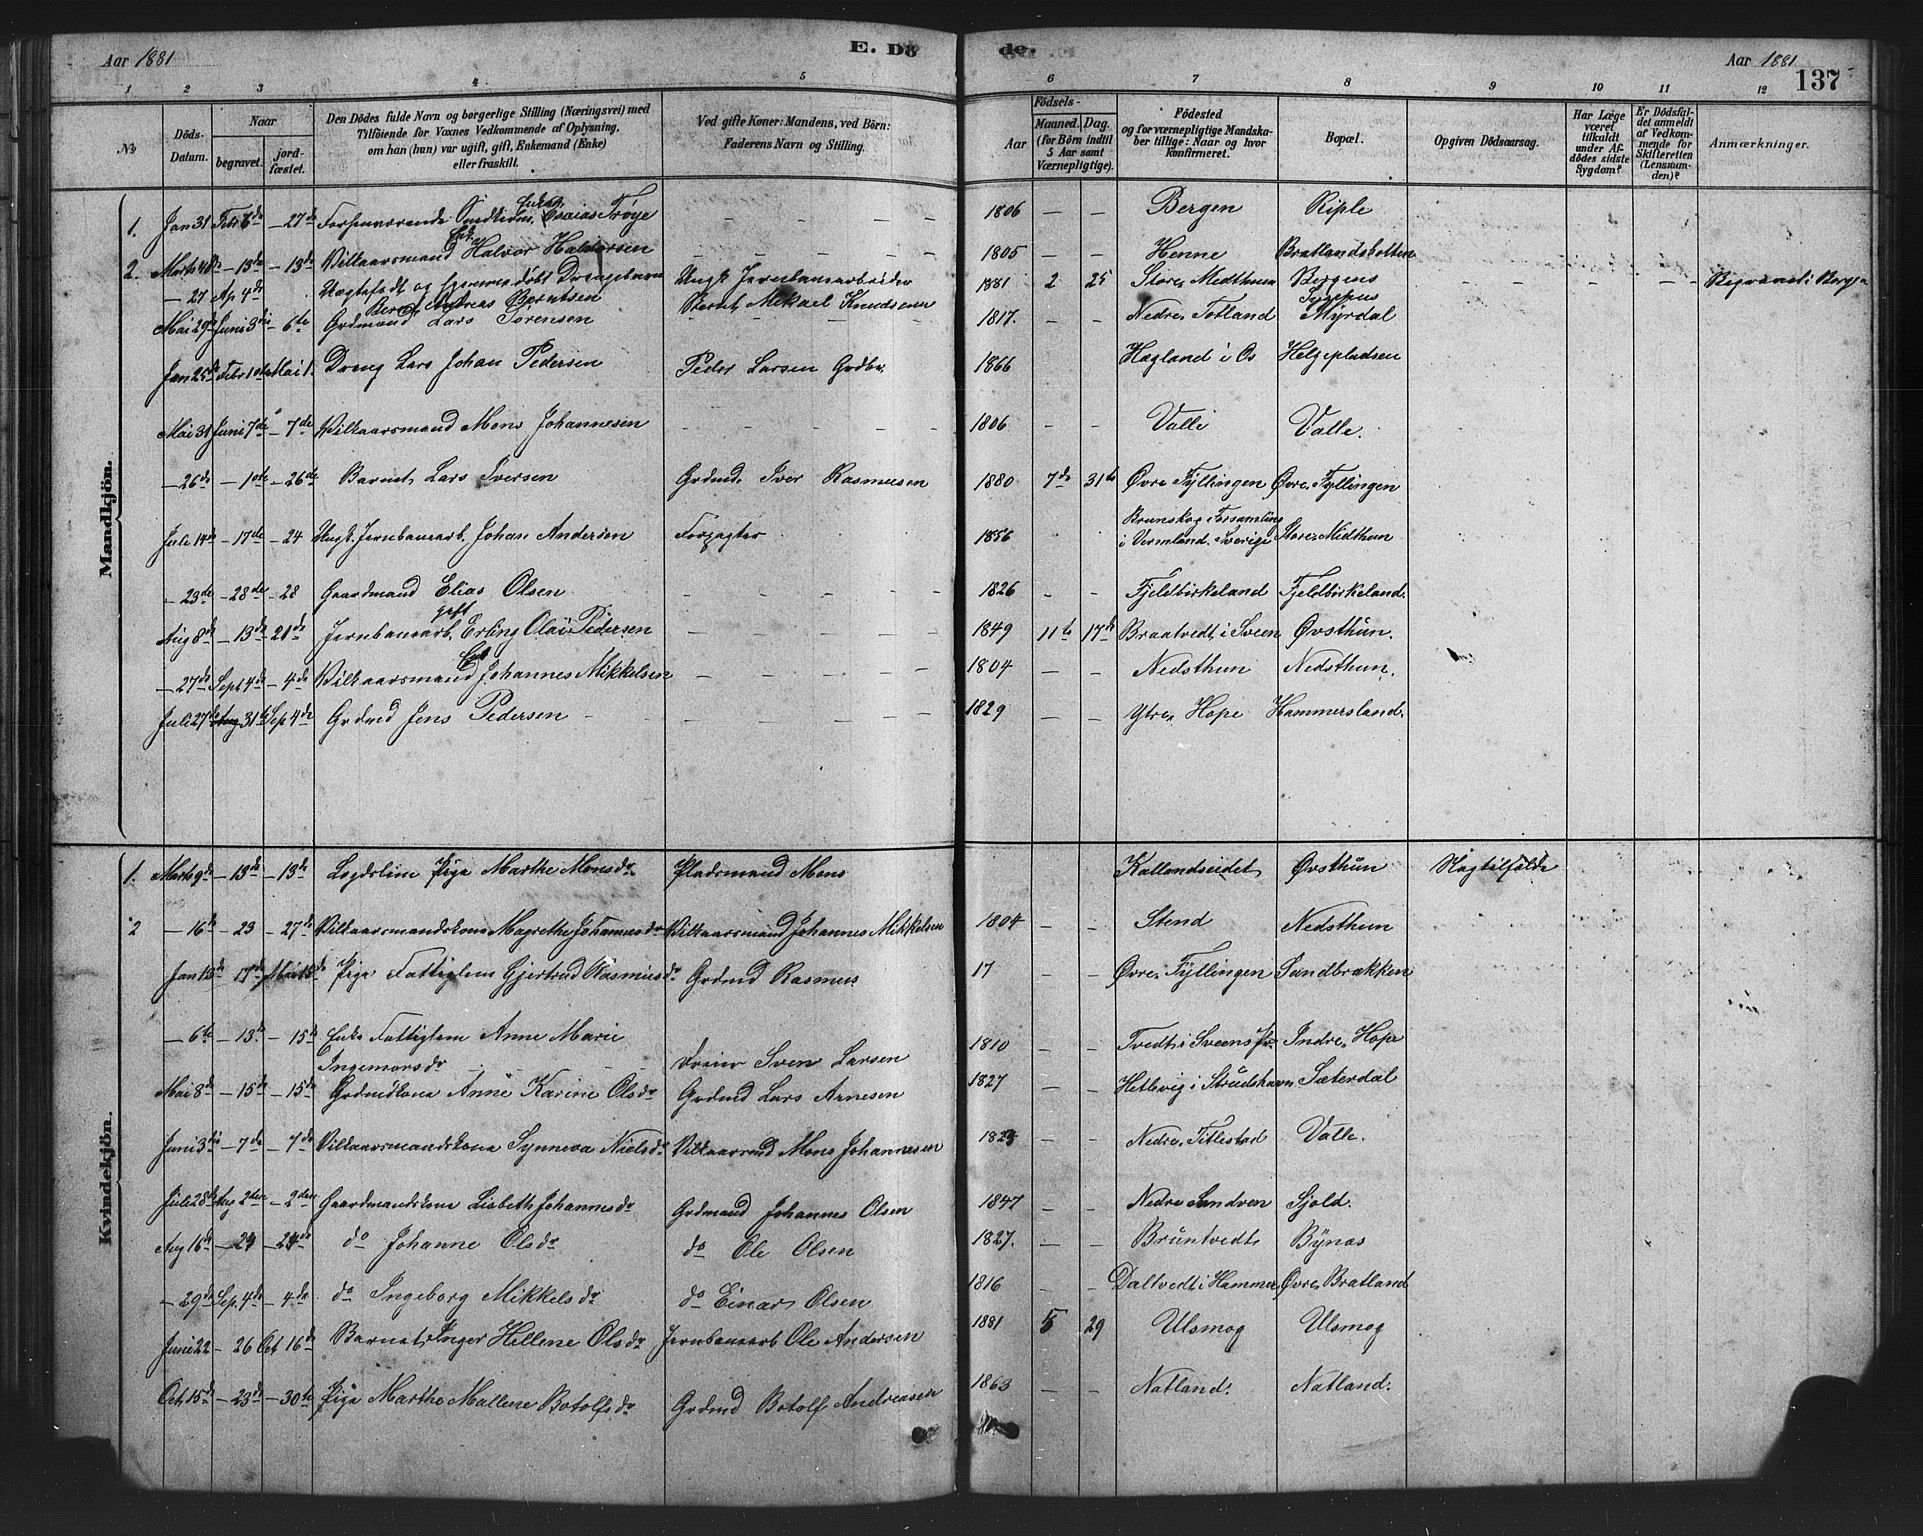 Aar 1881 E. Dö de. Aar 1881 137
1 2 3 4 5 6 7 8 9 10 11 12
№ Döds-Datum. Naar begravet. jordfæstet. Den Dödes fulde Navn og borgerlige Stilling (Næringsvei) med Tilföiende for Voxnes Vedkommende af Oplysning, om han (hun) var ugift, gift, Enkemand (Enke) eller fraskilt. Ved gifte Koner: Mandens, ved Börn: Faderens Navn og Stilling. Aar Födsels- Maaned. Dag. (for Börn indtil 5 Aar samt Værnepligtige). Födested og for værnepligtige Mandskaber tillige: Naar og hvor konfirmeret. Bopæl. Opgiven Dödsaarsag. Har Læge været tilkaldt under Afdödes sidste Sygdom? Er Dödsfaldet anmeldt af Vedkommende for Skifteretten (Lensmanden)? Anmærkninger.
Mandkjön.
1. Jan 31 Feb 6de – 27de Forhenværende Esaias Trøye – – – – 1806 – – Bergen Riple
2. Marts – 13de – 13de Vilkaarsmand Enk. Halvor Haldorsen – – – – 1805 – – Henne Bratlandsbotten
– 27 Ap 4de Uægtefødt og hjemmedøbt Drengebarn Bernt Andreas Berntsen Ungk Jernbanearbeider Bernt Mikael Knudsen 1881 2 25 Store Midthun Bergens Sygehus Begravet i Bergen
Mai 29de Juni 3die – 6te Grdmand Lars Sørensen – – – – 1817. – – Nedre Totland Myrdal
Jan 25de Febr 1ste Mai 1. Dreng Lars Johan Pedersen Peder Larsen Grdbr. 1866 Hagland i Os Helgepladsen
Mai 31 Juni 7de – 7de Vilkaarsmand Mons Johannesen – – – – 1806 – – Valle Valle.
– 26de – 10de – 26de Barnet Lars Iversen Grdmd. Iver Rasmussen 1880 7de 31te Øvre Fyllingen Øvre Fyllingen
Juli 14de – 17de – 24 Ungk. Jernbanearb. Johan Anderson Forpagter 1856 Brunskog Forsamling i Vermland, Sverige Store Midthun
– 23de – 28de – 28 Gaardmand Elias Olsen – – – – 1826 – – Fjeldbirkeland Fjeldbirkeland.
Aug 8de – 13de – 21de Jernbanearb. gift Erling Olai Pedersen – – – – 1849 11te 17de Braatvedt i Sveen Øvsthun.
– 27de Sept 4de – 4de Vilkaarsmand Enk Johannes Mikkelsen – – – – 1804 – – Nedsthun Nedsthun.
Juli 27de 31te Sep 4de Grdmd Jens Pedersen – – – – – 1829 – – Ytre Hope Hammersland.
Kvindekjön.
1. Marts 9de – 13de – 13de Lægdslim Pige Marthe Monsdr. Pladsmand Mons Kallandseidet Øvsthun Slagtilfælde
2 – 16de – 23 – 27de Vilkaarsmandskone Magrethe Johannesdr Vilkaarsmand Johannes Mikkelsen 1804 – – Stend Nedsthun
Jan 13de – 17de Mai 15de Pige Fattiglem Gjertrud Rasmusdr Grdmd Rasmus 17 – – Øvre Fyllingen Sandbrækken
– 6te – 13de – 15de Enke Fattiglem Anne Marie Ingemorsdr – – – – Sven Larsen 1810 – – Tvedt i Sveens Pr. Indre Hope
Mai 8de – 15de – 15de Grdmdkone Anne Karine Olsdr Grdmd Lars Arnesen 1827 – – Hetlevig i Strudshavn Sæterdal
Juni 3die – 7de – 7de Vilkaarsmandskone Synneva Nielsdr Vilkaarsmd Mons Johannesen – – Nedre Titlestad Valle.
Juli 28de Aug 2den – 2den Gaardmandskone Lisbeth Johannesdr Grdmand Johannes Olsen 1847 – – Nedre Sandven Sjold.
Aug 16de – 21 – 21de do Johanne Olsdr do Ole Olsen 1827. – – Bruntvedt Bynas
– 29de Sep. 4de – 4de do Ingeborg Mikkelsdr do Einar Olsen 1816 – – Daltvedt i Hammer Øvre Bratland
Juni 22 – 26 Oct 16de Barnet Inger Hellene Olsdr Jernbanearb Ole Andersen 1881 5 29 Ulsmog Ulsmog
Oct 15de – 23de – 30te Pige Marthe Mallene Botolfsdr Grdmd Botolf Andreasen 1863 – – Natland. Natland.